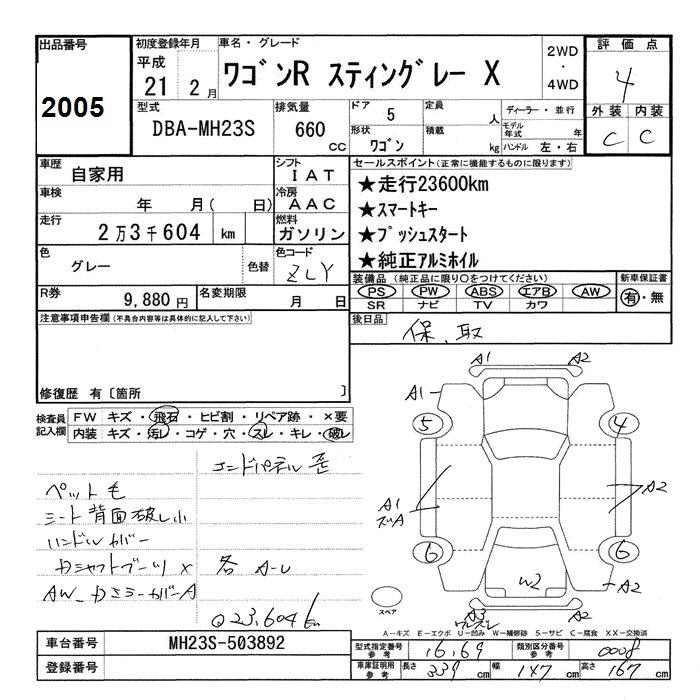 出品番号
2005
初度登録年月
平成
21 2月
車名・グレード
ワゴンR スティングレー X
2WD
・
4WD
評価点
4
外装 内装
C C
型式
DBA-MH23S
排気量
660
cc
ドア 5
形状 ワゴン
定員 人
積載 kg
ディーラー・並行
モデル年式 年
ハンドル 左・右
車歴
自家用
シフト
IAT
車検
年 月( 日)
冷房
AAC
走行
2万3千604 km
燃料
ガソリン
色
グレー
色替
色コード
ZLY
R券
9,880円
名変期限
月 日
セールスポイント(正常に機能するものに限ります)
★走行23600km
★スマートキー
★プッシュスタート
★純正アルミホイル
装備品 (純正品に限り○をつけてください)
PS PW ABS エアB AW
SR ナビ TV カワ
新車保証書
有・無
後日品
保、取
注意事項申告欄(不具合内容等は具体的に記入して下さい)
修復歴 有〔箇所 〕
検査員記入欄
FW キズ・飛石・ヒビ割・リペア跡・×要
内装 キズ・汚レ・コゲ・穴・スレ・キレ・破レ
エンドパネル
ペット毛
シート背面破レ小
ハンドルカバー
カシャフトブーツ×
各 A-U
AW、カミラーカバーA
Q23,604km
A1 A2
A1
5 4
A1
A2
6 6
W2
A2
A3
A2
スペア
A-キズ E-エクボ U-凹み W-補修跡 S-サビ C-腐食 XX-交換済
車台番号
MH23S-503892
登録番号
型式指定番号 参考 16,69
類別区分番号 参考 0008
車庫証明用 参考 長さ 339 cm 幅 147 cm 高さ 167 cm